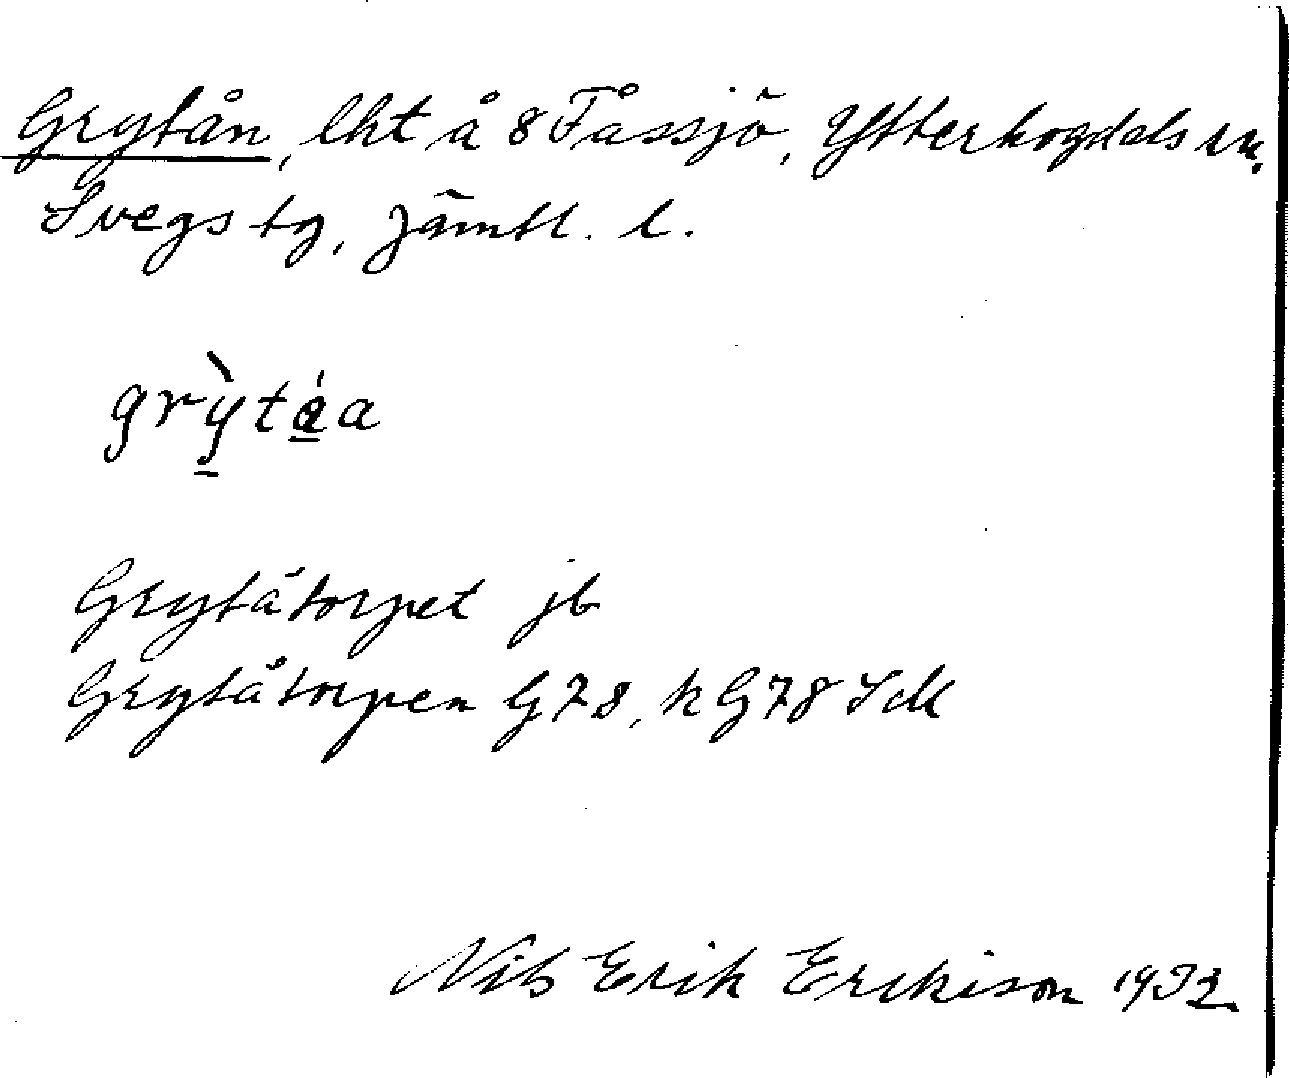 Grytån, lht å 8 Fåssjö, Ytterhogdals sn.
Svegs tg, Jämtl. l.
grỳtáa
Grytåtorpet jb
Grytåtorpen G78, k G78 SdM
Nils Erik Erikison 1932